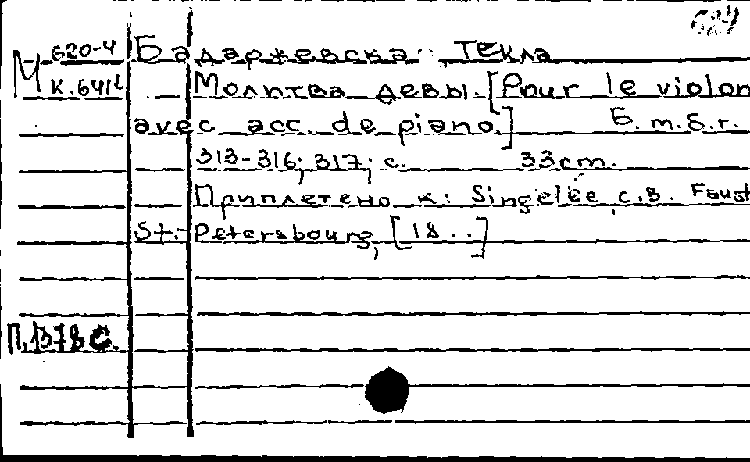 684
М 620-4
К.641i
Бадаржевска Текла
Молитва девы. [Pour le violon
avec acc. de piano.] Б.m.б.г.
313-316; 317; с. 33cm.
Приплетено к: Singelée, c.B. Faust
St.-Petersbourg, [18..]
П.1378с.